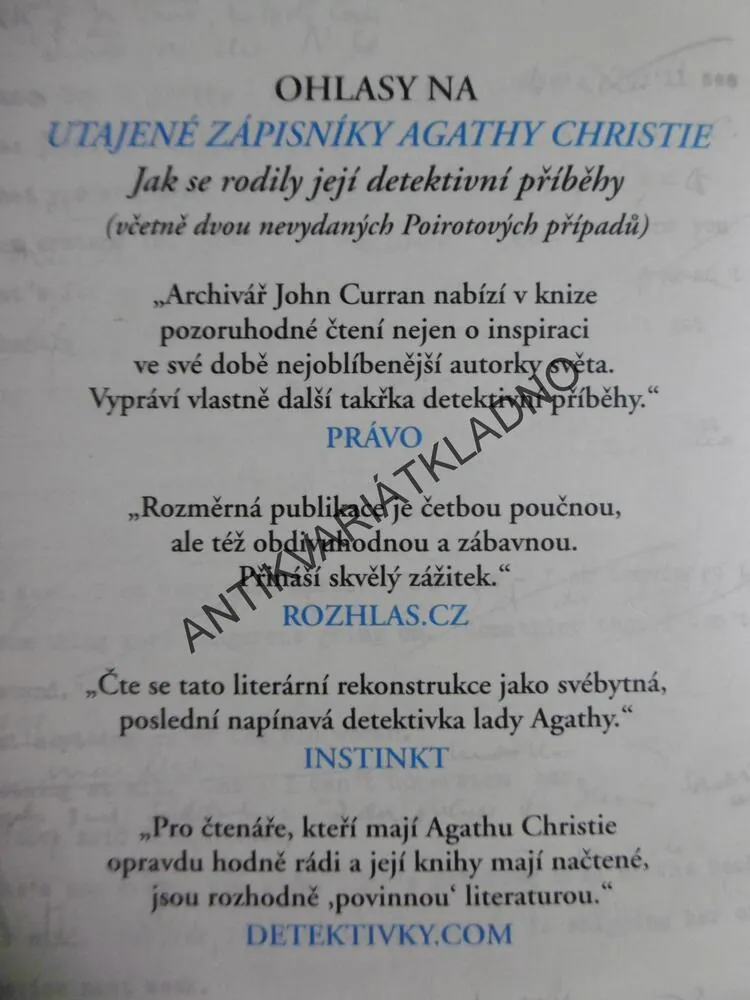 OHLASY NA
UTAJENÉ ZÁPISNÍKY AGATHY CHRISTIE
Jak se rodily její detektivní příběhy
(včetně dvou nevydaných Poirotových případů)
„Archivář John Curran nabízí v knize
pozoruhodné čtení nejen o inspiraci
ve své době nejoblíbenější autorky světa.
Vypráví vlastně další takřka detektivní příběhy.“
PRÁVO
„Rozměrná publikace je četbou poučnou,
ale též obdivuhodnou a zábavnou.
Přináší skvělý zážitek.“
ROZHLAS.CZ
„Čte se tato literární rekonstrukce jako svébytná,
poslední napínavá detektivka lady Agathy.“
INSTINKT
„Pro čtenáře, kteří mají Agathu Christie
opravdu hodně rádi a její knihy mají načtené,
jsou rozhodně ‚povinnou‘ literaturou.“
DETEKTIVKY.COM
ANTIKVARIÁTKLADNO